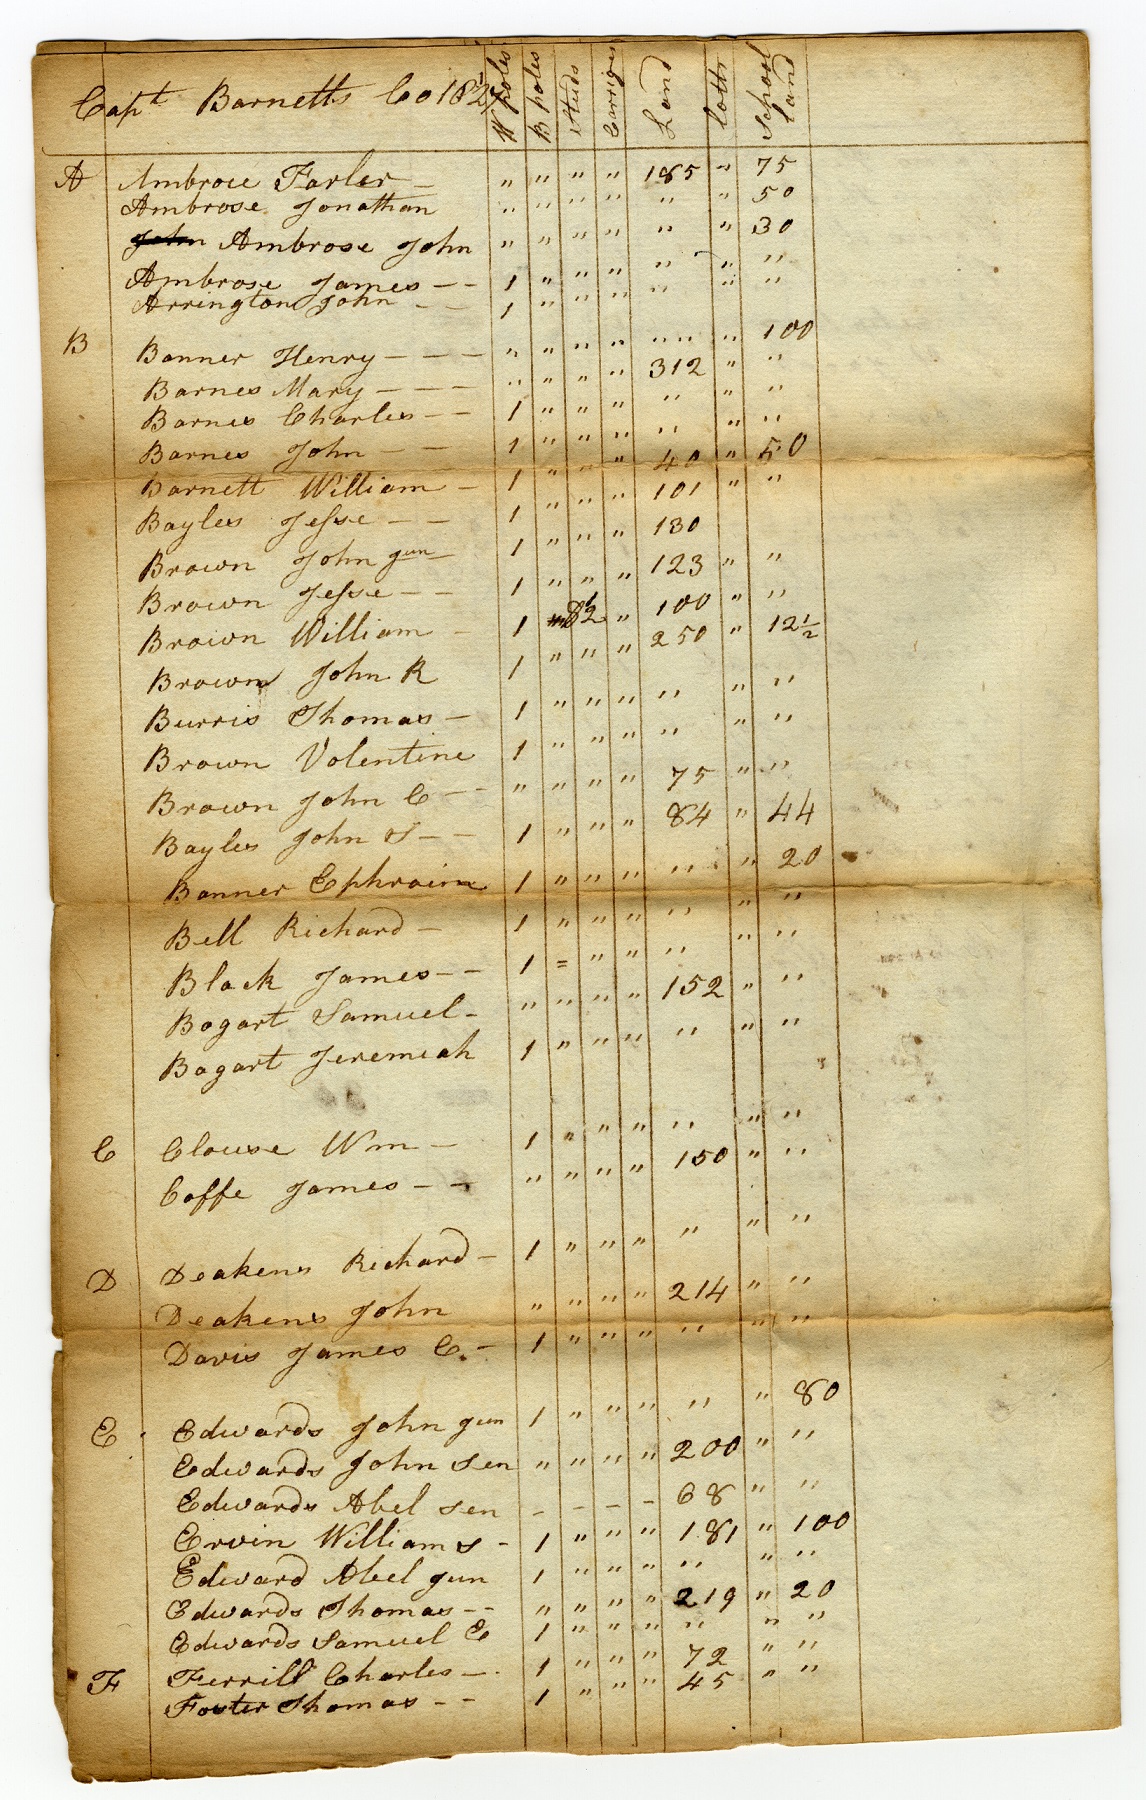 Capt Barnetts Co 182 W poles B poles Studs Carriges Land lotts School land
A Ambrose Farler – " " " " 185 " 75
Ambrose Jonathan " " " " " " 50
John Ambrose John " " " " " " 30
Ambrose James – – 1 " " " " " "
Arrington John – – 1 " " " " " "
B Banner Henry – – – " " " " " " " 100
Barnes Mary – – – " " " " 312 " "
Barnes Charles – – 1 " " " " " "
Barnes John – – 1 " " " " " "
Barnett William – 1 " " " 40 " 50
Bayles Jesse – – 1 " " " 101 " "
Brown John Jun – 1 " " " 130
Brown Jesse – – 1 " " " 123 " "
Brown William – 1 8½ " 100 " "
Brown John R 1 " " " 250 " 12½
Burris Thomas – 1 " " " " " "
Brown Volentine 1 " " " " " "
Brown John C – – " " " " 75 " "
Bayles John S – – 1 " " " 84 " 44
Banner Ephraim 1 " " " " " 20
Bell Richard – 1 " " " " " "
Black James – – 1 = " " " " "
Bogart Samuel – " " " " 152 " "
Bogart Jeremiah 1 " " " " " "
C Clouse Wm – 1 " " " " " "
Coffe James – – " " " " 150 " "
D Deakens Richard – 1 " " " " " "
Deakens John " " " " 214 " "
Davis James C. – 1 " " " " " "
E Edwards John Jun 1 " " " " " 80
Edwards John Sen " " " " 200 " "
Edwards Abel Sen – – – – 68 " "
Ervin William S – 1 " " " 181 " 100
Edward Abel Jun 1 " " " " " "
Edwards Thomas – – " " " " 219 " 20
Edwards Samuel E 1 " " " " " "
F Ferrill Charles – 1 " " " 72 " "
Foster Thomas – – 1 " " " 45 " "